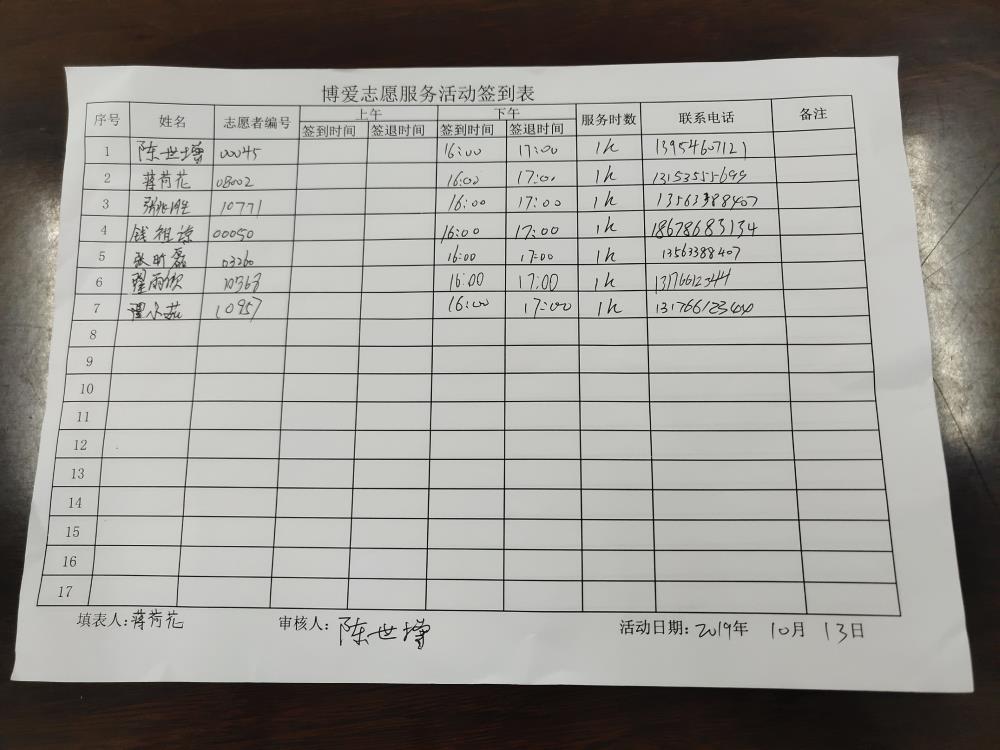 博爱志愿服务活动签到表
序号 姓名 志愿者编号 上午 下午 服务时数 联系电话 备注
签到时间 签退时间 签到时间 签退时间
1 陈世增 00045 16:00 17:00 1h 13954607121
2 蒋荷花 08002 16:00 17:00 1h 13153555699
3 10771 16:00 17:00 1h 13563388407
4 钱祖 00050 16:00 17:00 1h 18678683134
5 张昕磊 03260 16:00 17:00 1h 13563388407
6 翟雨欣 10968 16:00 17:00 1h
7 10957 16:00 17:00 1h
8
9
10
11
12
13
14
15
16
17
填表人:蒋荷花 审核人:陈世增 活动日期:2019年 10月 13日